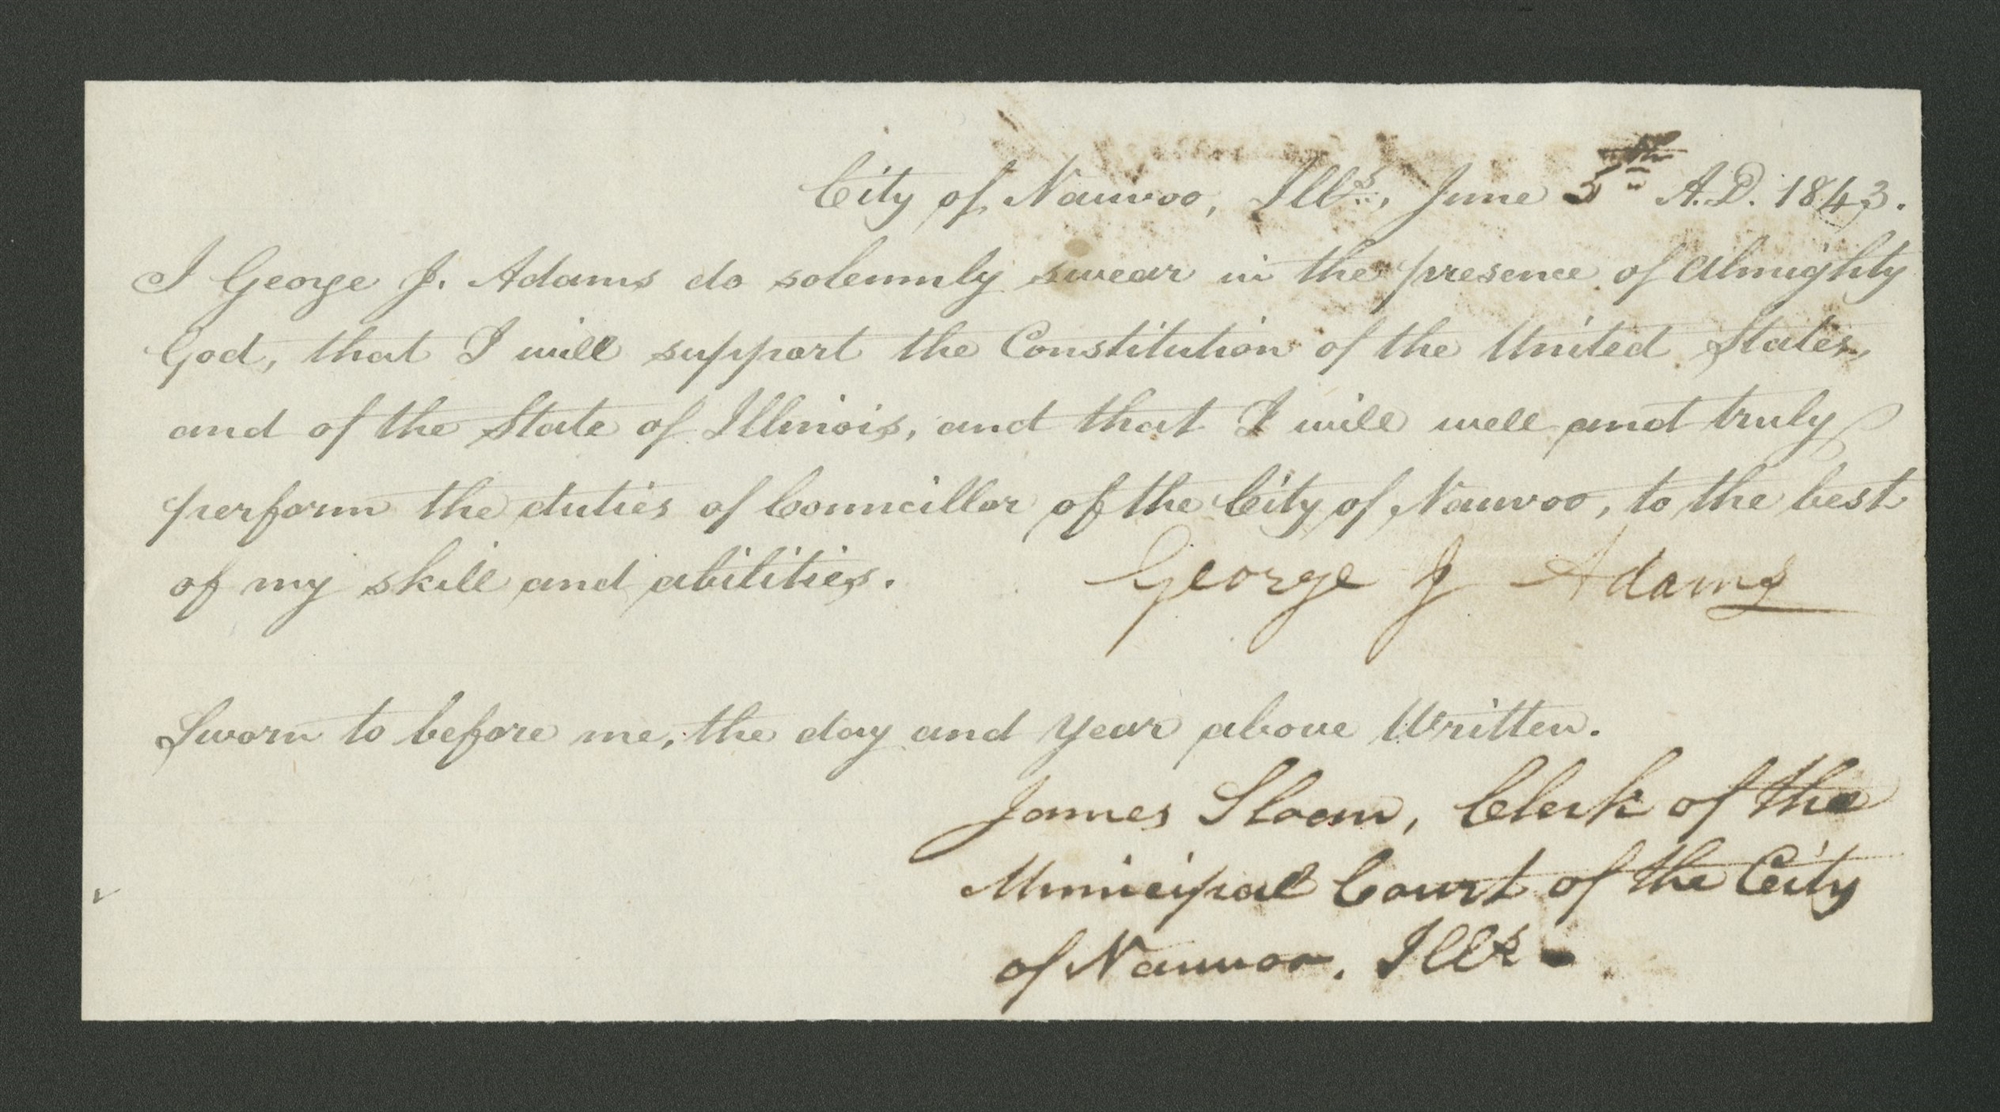 City of Nauvoo, Ills., June 5th A.D. 1843.
I George J. Adams do solemnly swear in the presence of Almighty
God, that I will support the Constitution of the United States,
and of the State of Illinois, and that I will well and truly
perform the duties of Councillor of the City of Nauvoo, to the best
of my skill and abilities. George J Adams
Sworn to before me, the day and year above Written.
James Sloan, Clerk of the
Municipal Court of the City
of Nauvoo, Ills.